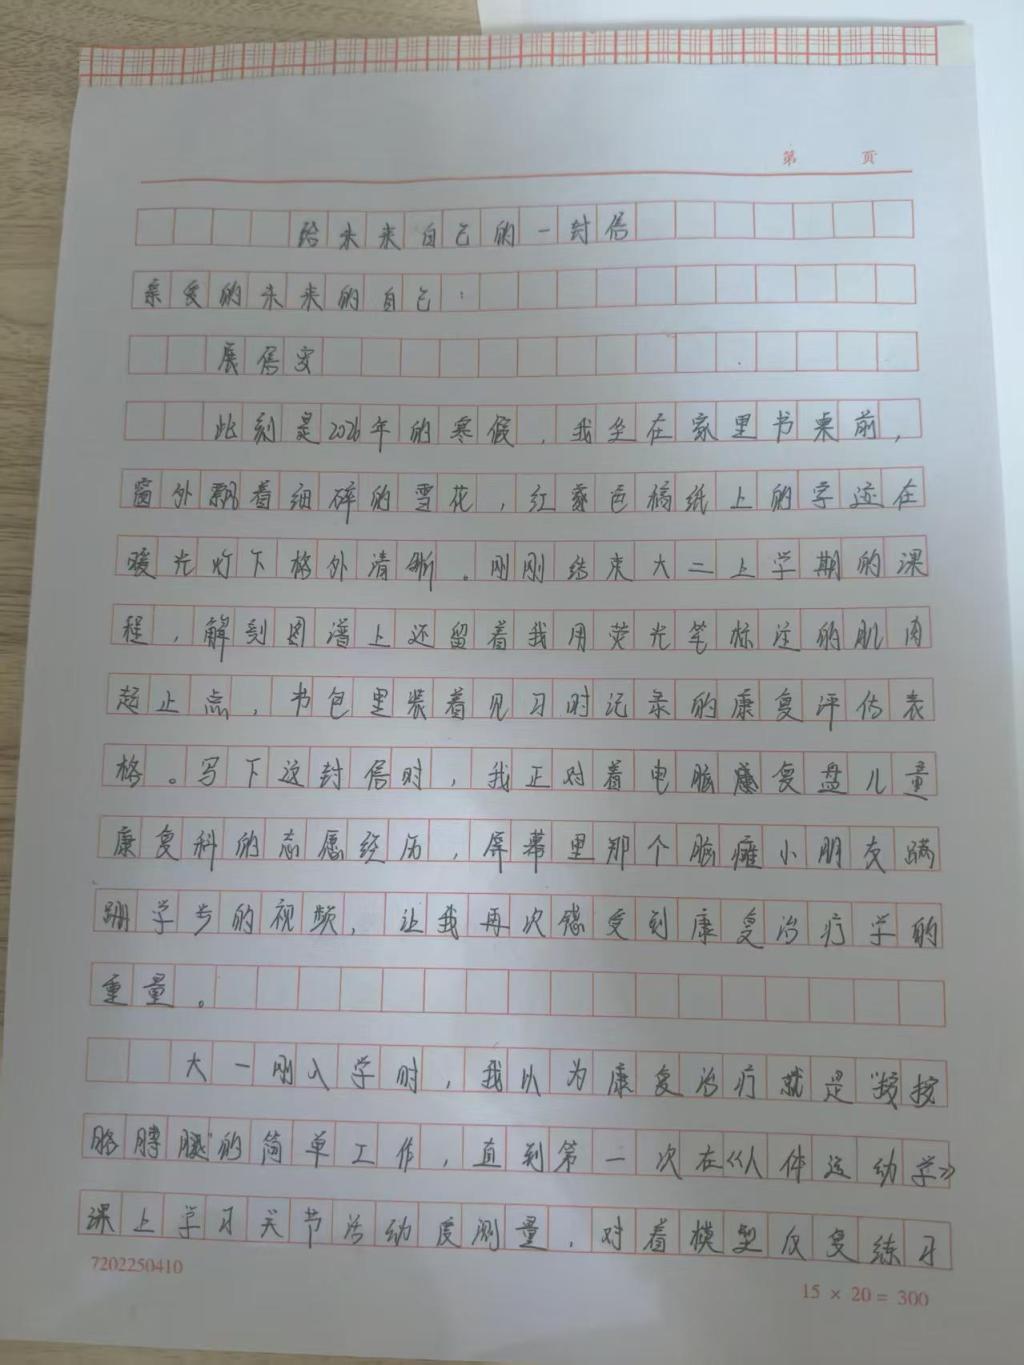 第 页
给未来自己的一封信
亲爱的未来的自己：
展信安
此刻是2026年的寒假，我坐在家里书桌前，
窗外飘着细碎的雪花，红豖色稿纸上的字迹在
暖光灯下格外清晰。刚刚结束大二上学期的课
程，解剖图谱上还留着我用荧光笔标注的肌肉
起止点，书包里装着见习时记录的康复评估表
格。写下这封信时，我正对着电脑复盘儿童
康复科的志愿经历，屏幕里那个脑瘫小朋友蹒
跚学步的视频，让我再次感受到康复治疗学的
重量。
大一刚入学时，我以为康复治疗就是“按按
胳膊腿”的简单工作，直到第一次在《人体运动学》
课上学习关节活动度测量，对着模型反复练习
7202250410
15 × 20 = 300